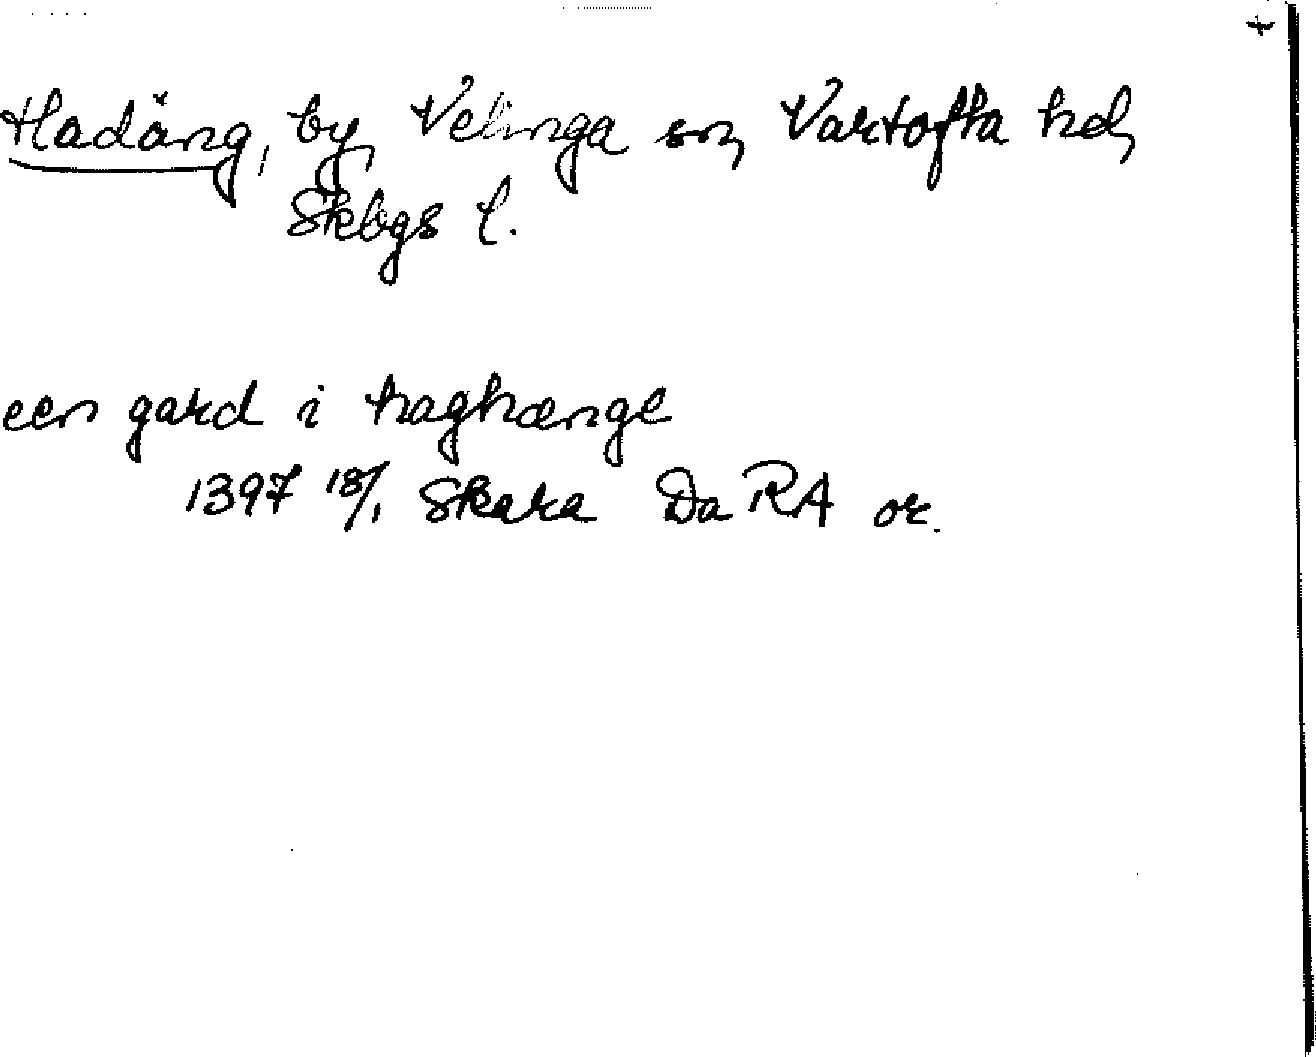 Hadäng, by, Velinga sn, Vartofta hd,
Skbgs l.
een gard i haghænge
1397 18/1 Skara Da RA or.